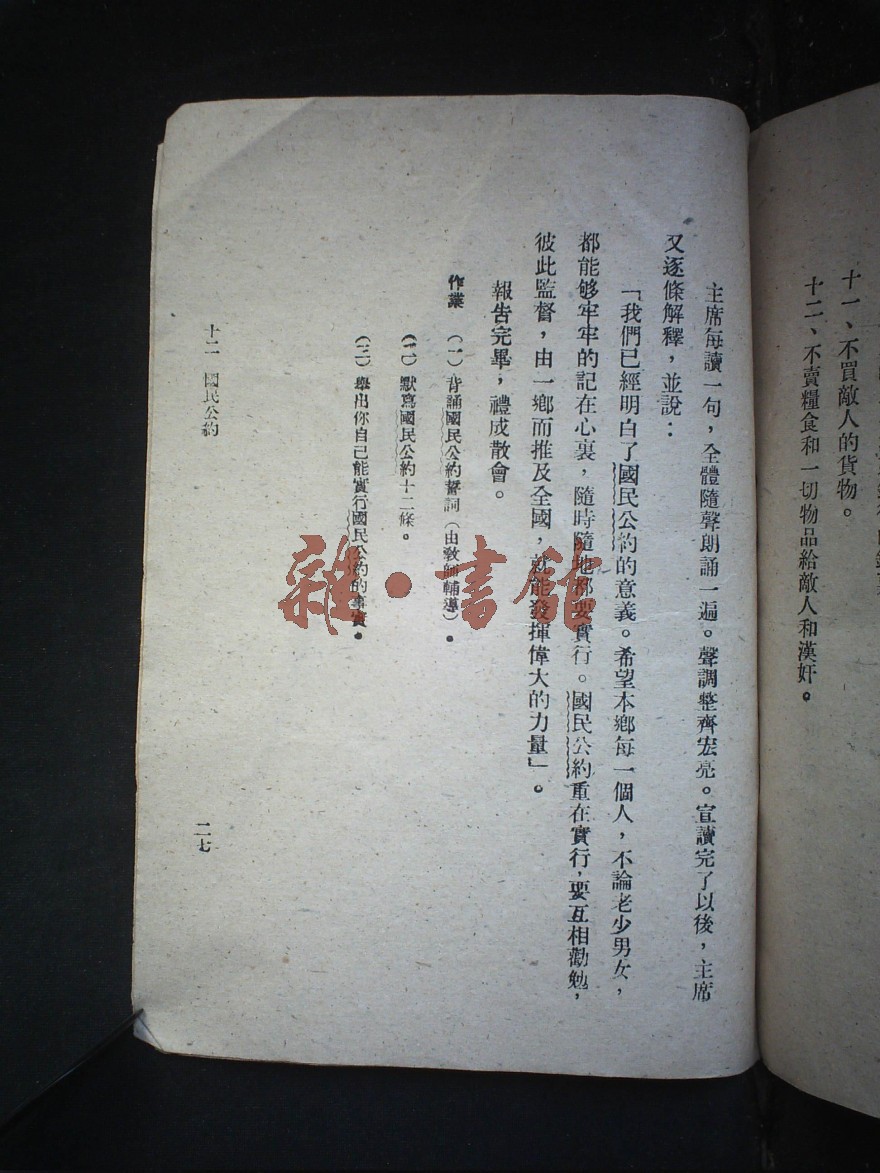 十一、不買敵人的貨物。
十二、不賣糧食和一切物品給敵人和漢奸。
主席每讀一句，全體隨聲朗誦一遍。聲調整齊宏亮。宣讀完了以後，主席
又逐條解釋，並說：
「我們已經明白了國民公約的意義。希望本鄉每一個人，不論老少男女，
都能够牢牢的記在心裏，隨時隨地都要實行。國民公約重在實行，要互相勸勉，
彼此監督，由一鄉而推及全國，就能發揮偉大的力量」。
報告完畢，禮成散會。
作業　（一）背誦國民公約誓詞（由敎師輔導）。
（二）默寫國民公約十二條。
（三）舉出你自己能實行國民公約的事實。
十二　國民公約
二七
雜·書館